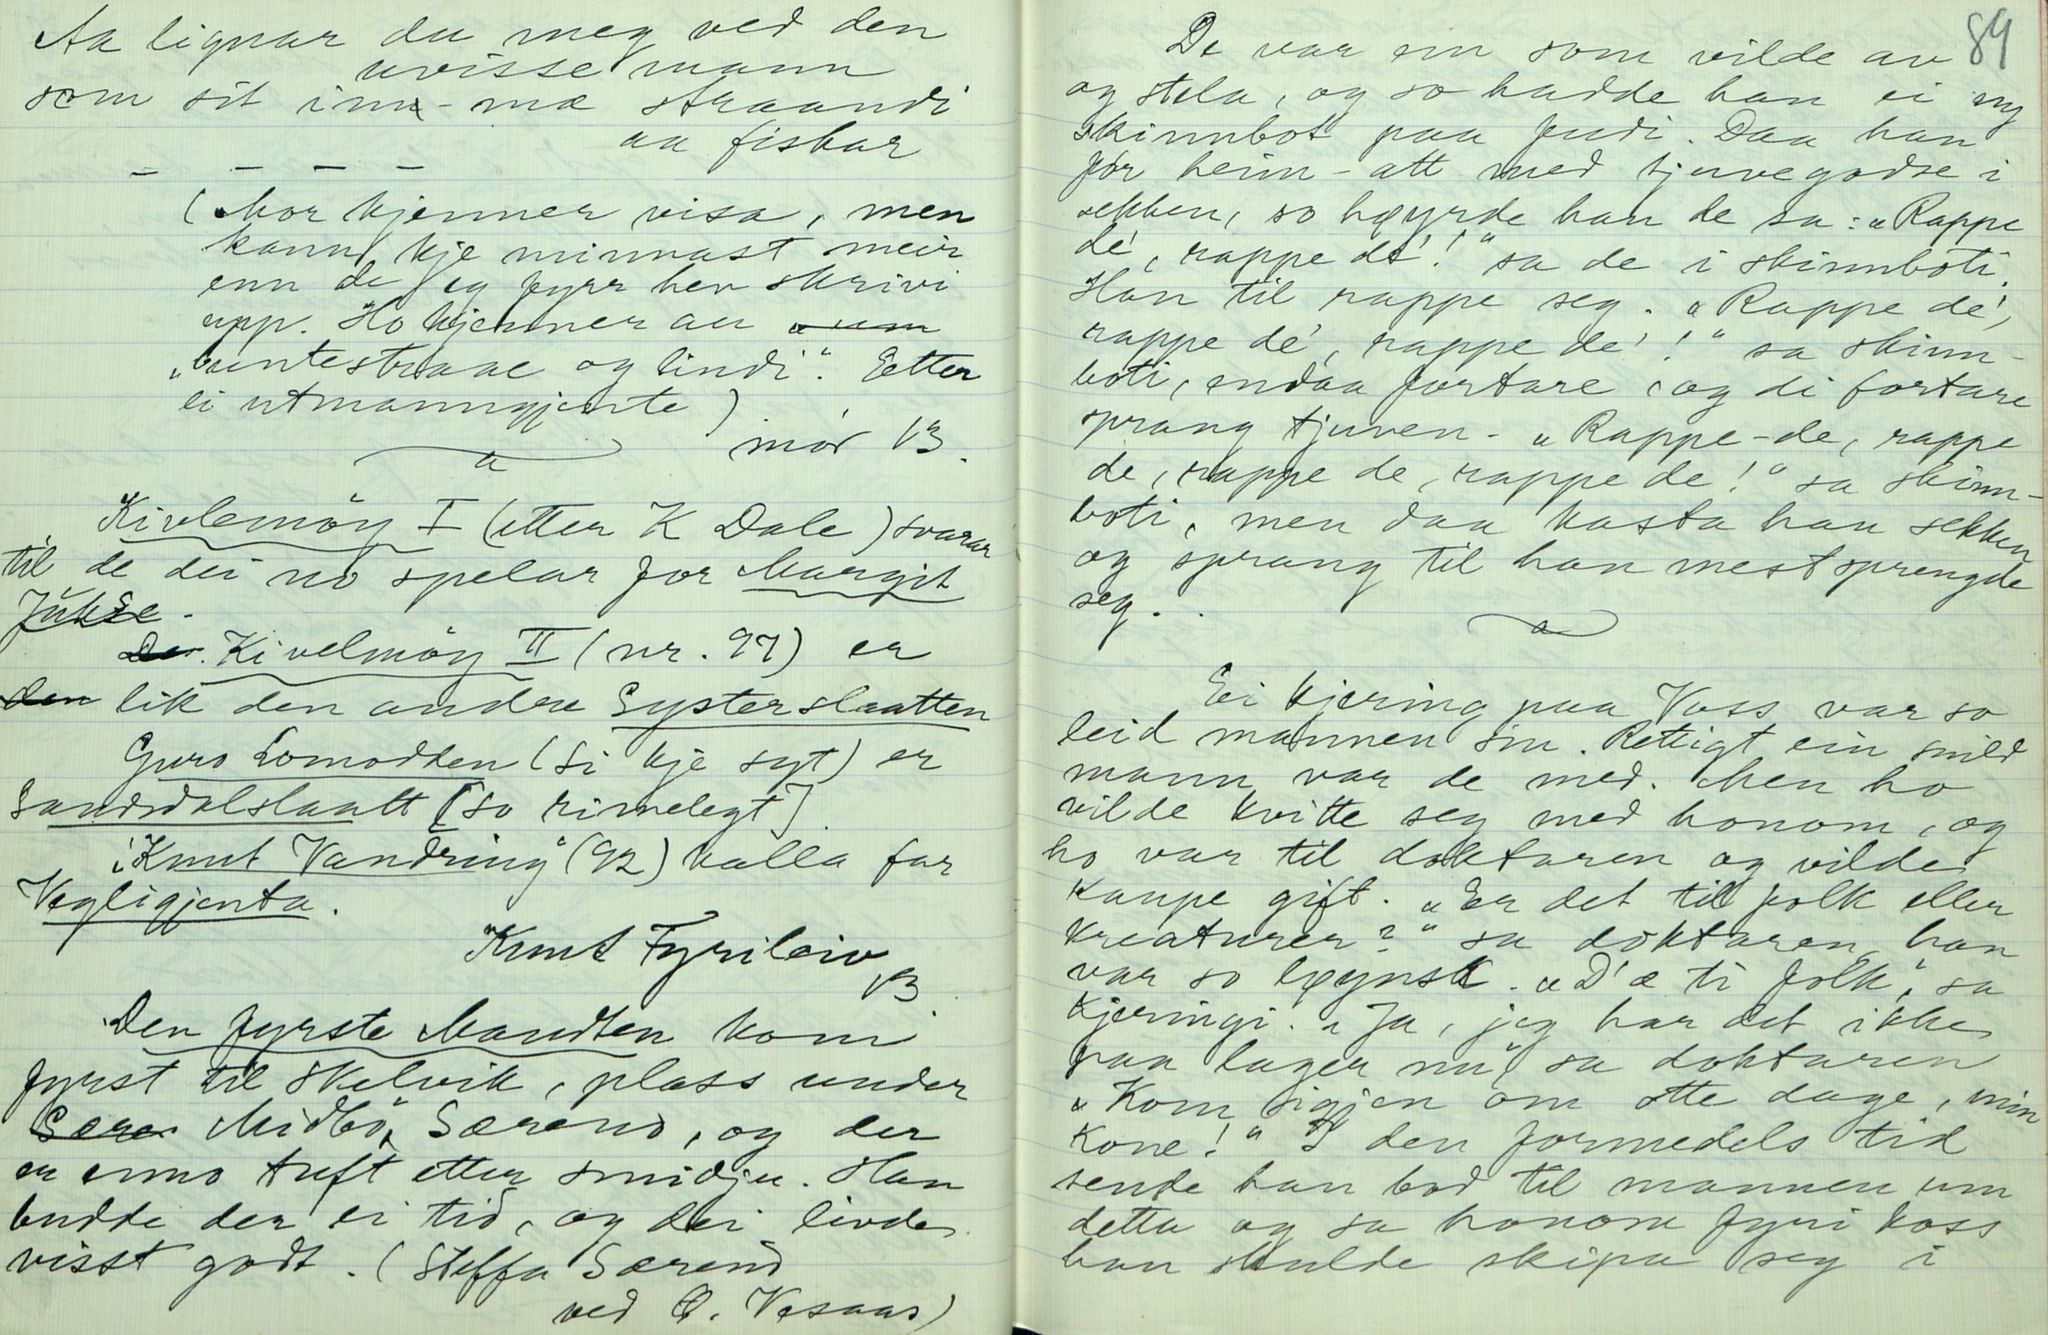 Aa lignar du meg ved den
uvisse mann
som sit inn-mæ straandi
aa fiskar
— — — —
(Mor kjenner visa, men
kann kje minnast meir
enn de eg fyrr hev skrivi
upp. Ho kjenner au „um
„buntestraae og lindi". Etter
ei utmanngjente)
mor 13.
Kivlemöy I (etter K Dale) svarar
til de dei no spelar for Margit
Jukse.
De Kivelmöy II (nr. 97) er
den lik den andre Systerslaatten
Guro Lomodden (Si kje syt) er
Sandsdalslaatt [so rimelegt]
„Knut Vandring" (92) kalla far
Vegligjenta.
Knut Fyrileiv
13.
Den fyrste Mandten kom
fyrst til Skelvik, plass under
Sære Midbö, Særend, og der
er enno tuft etter smidju. Han
budde der ei tid, og dei livde
visst godt. (Steffa Særend
ved O. Vesaas)
89
De var ein som vilde av
og stela, og so hadde han ei ny
skinnbot paa fudi. Daa han
for heim-att med tjuvegodse i
sekken, so høyrde han de sa: „Rappe
dé, rappe dé!" sa de i skinnboti.
Han til rappe seg. „Rappe dé,
rappe dé, rappe dé!" sa skinn-
boti, endaa fortare, og di fortare
sprang tjuven. „Rappe-de, rappe
de, rappe de, rappe de!" sa skinn-
boti, men daa kasta han sekken
og sprang til han mest sprengde
seg.
Ei kjering paa Voss var so
leid mannen sin. Rettigt ein snild
mann var de med. Men ho
vilde kvitte seg med honom, og
ho var til doktaren og vilde
kaupe gift. „Er det til folk eller
kreaturer?" sa doktaren, han
var so løynsk. „D'æ ti folk", sa
kjeringi. „Ja, jeg har det ikke
paa lager nu" sa doktaren
„Kom igjen om otte dage, min
kone!" I den formedels tid
sende han bod til mannen um
detta og sa honom fyri koss
han skulde skipa seg i